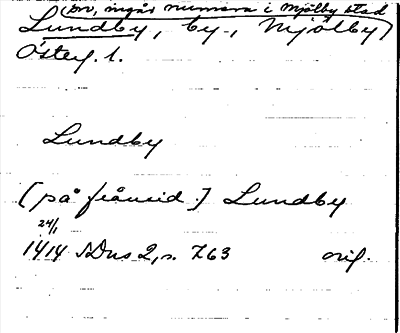 (sn, ingår numera i Mjölby stad)
Lundby, by, Mjölby
Österg. l.
Lundby
[på frånsid.] Lundby
24/1
1414 SDns 2, s. 763 orig.